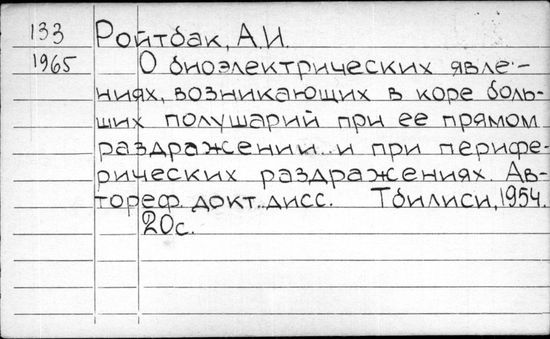 133 Ройтбак, А.И.
1965 О биоэлектрических явле-
ниях, возникающих в коре боль-
ших полушарий при ее прямом
раздражении и при перифе-
рических раздражениях. Ав-
тореф. докт. дисс. Тбилиси, 1954.
20с.